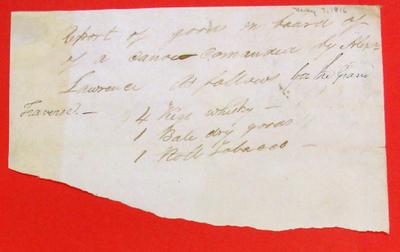 May 7, 1816
Report of goods on board of
of a canoe comanded by Alexr
Lawrence as follows for the Grand
Traverse —
4 Kegs whisky —
1 Bale dry goods
1 Roll Tobacco —